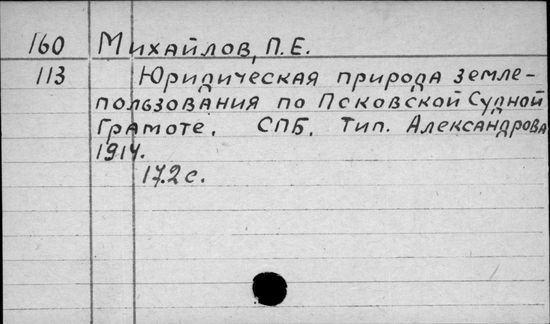 160 Михайлов, П.Е.
113 Юридическая природа земле-
пользования по Псковской Судной
Грамоте. СПБ. Тип. Александрова
1914.
172 с.